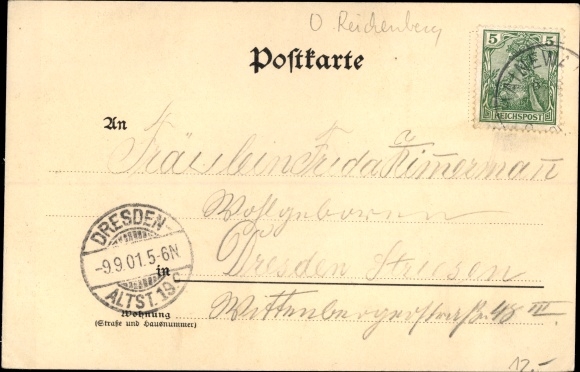 O. Reichenberg
Postkarte
5
REICHSPOST
An
Fräulein Frida Zimerman
Wohlgeboren
DRESDEN-
-9.9.01.5-6N
ALTST. 19 c
in
Dresden Striesen
Wohnung
(Straße und Hausnummer)
Wittenbergerstraße 48 III.
12.-